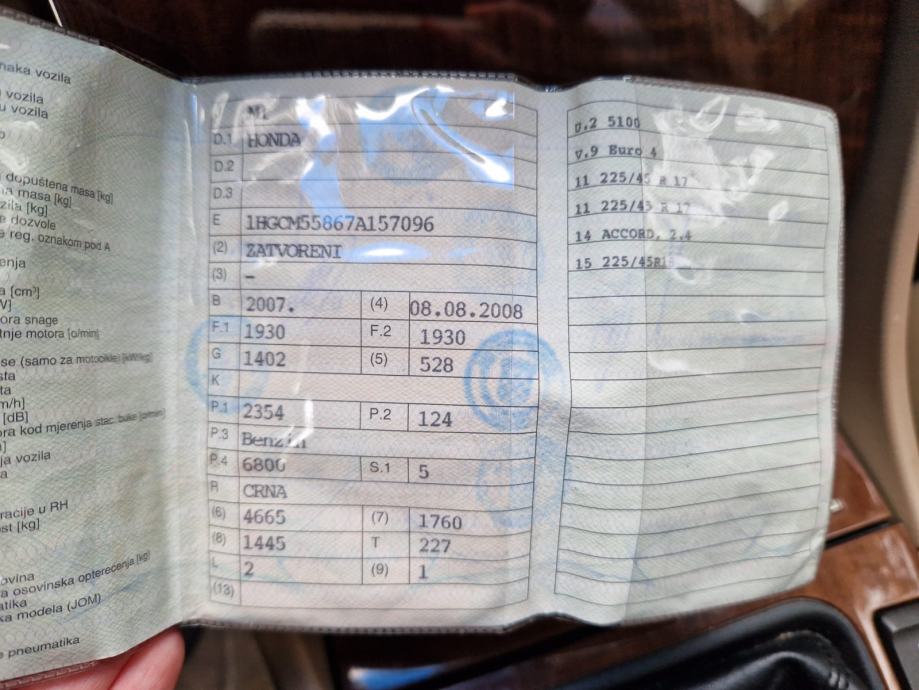 naka vozila
vozila
u vozila
dopuštena masa [kg]
na masa [kg]
zila [kg]
e dozvole
e reg. oznakom pod A
enja
a [cm³]
W]
ora snage
tnje motora [o/min]
se (samo za motocikle) [kW/kg]
sta
ta
m/h]
[dB]
ora kod mjerenja stac. buke [o/min]
ja vozila
a
racije u RH
st [kg]
ovina
a osovinska opterećenja [kg]
atika
ka modela (JOM)
e pneumatika
J M1
D.1 HONDA
D.2
D.3
E 1HGCM55867A157096
(2) ZATVORENI
(3) –
B 2007. (4) 08.08.2008
F.1 1930 F.2 1930
G 1402 (5) 528
K
P.1 2354 P.2 124
P.3 Benzin
P.4 6800 S.1 5
R CRNA
(6) 4665 (7) 1760
(8) 1445 T 227
L 2 (9) 1
(13)
U.2 5100
V.9 Euro 4
11 225/45 R 17
11 225/45 R 17
14 ACCORD, 2.4
15 225/45R18